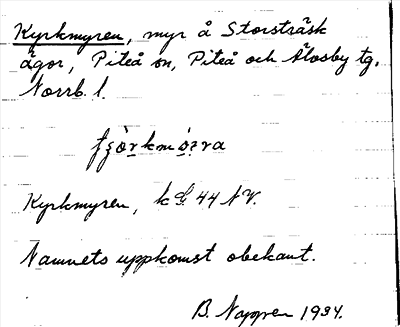 Kyrkmyren, myr å Storsträsk
ägor, Piteå sn, Piteå och Älvsby tg.
Norrb. l.
Kyrkmyren, k 44 NV.
Namnets uppkomst obekant.
B. 1934.